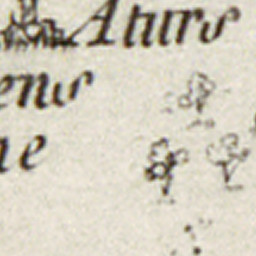 Aturs
ens
ne